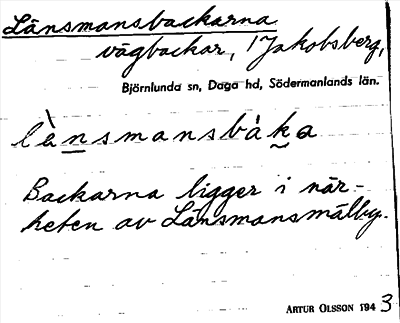 Länsmansbackarna
vägbackar, 1 Jakobsberg,
Björnlunda sn, Daga hd, Södermanlands län.
lànsmansbàka
Backarna ligger i när-
heten av Länsmansmålby.
ARTUR OLSSON 1943